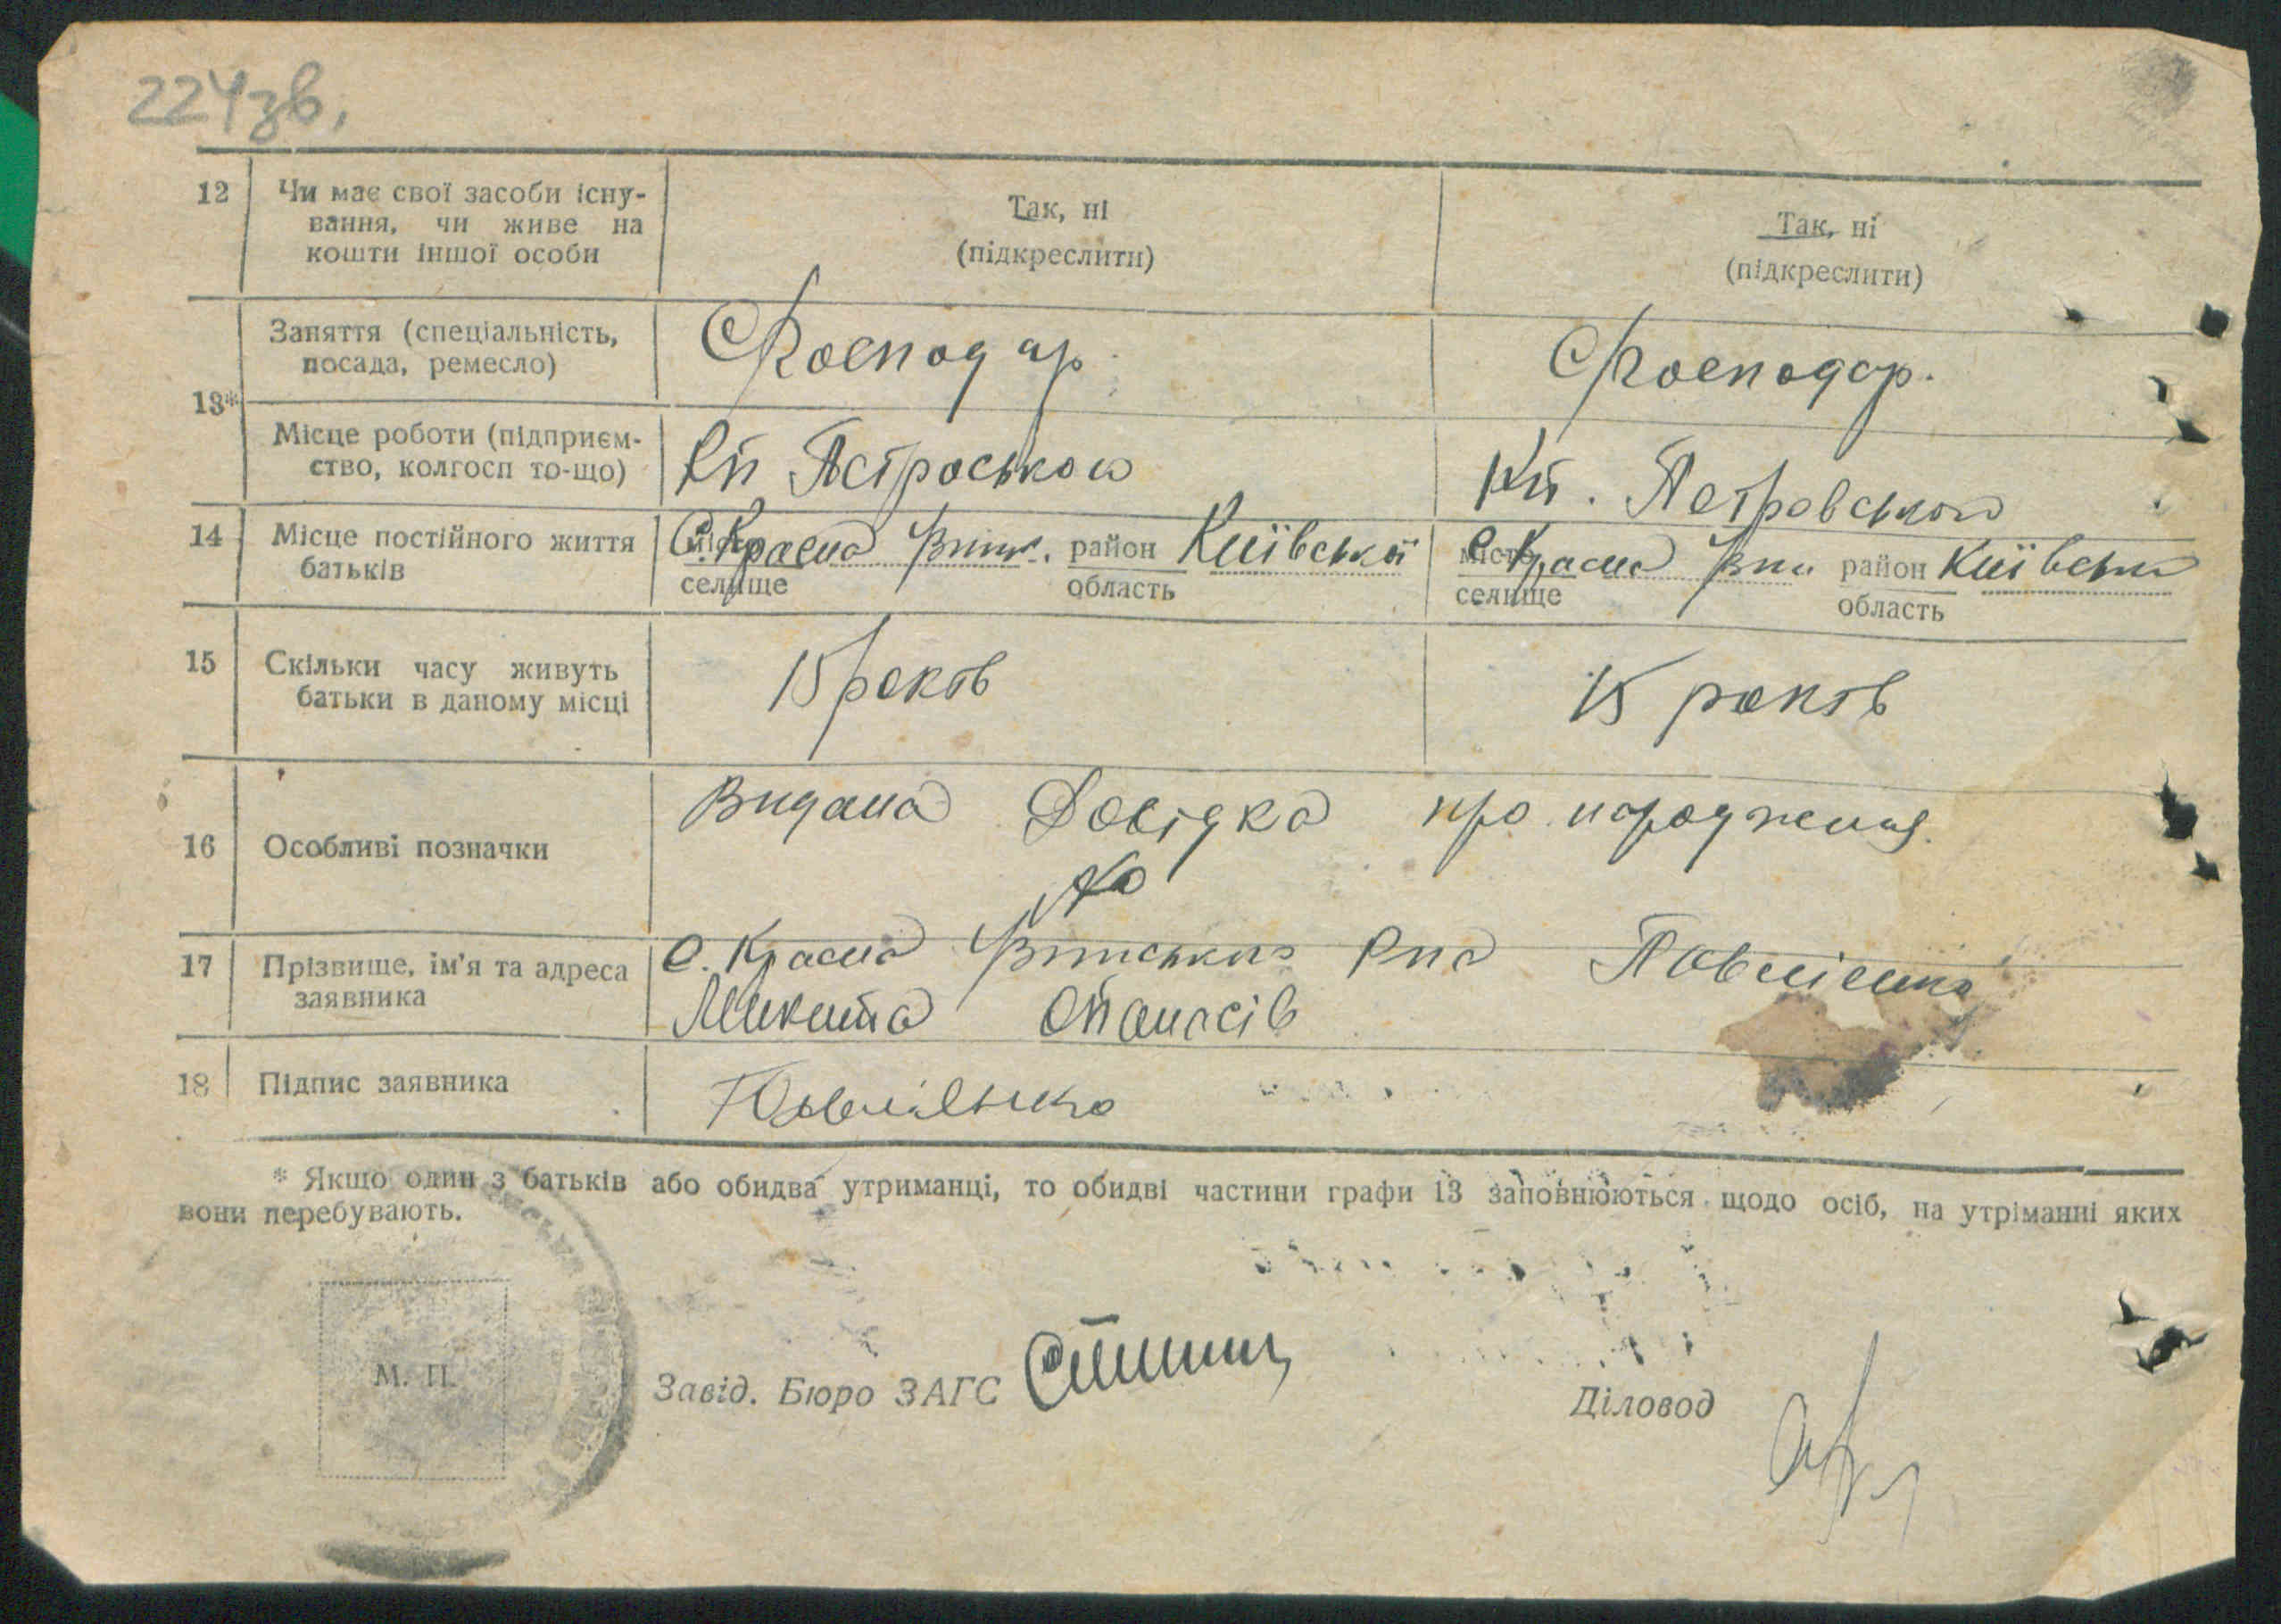 224зв.
12 Чи має свої засоби існу-
вання, чи живе на
кошти іншої особи
Так, ні
(підкреслити)
Так, ні
(підкреслити)
13*
Заняття (спеціальність,
посада, ремесло)
Господар
Господар.
Місце роботи (підприєм-
ство, колгосп то-що)
Петровського
14 Місце постійного життя
батьків
С. Красна район Київської
місто
селище область
С. Красна район Київська
місто
селище область
15 Скільки часу живуть
батьки в даному місці
15 років
15 років
16 Особливі позначки
Видана Довідка про народження.
17 Прізвище, ім'я та адреса
заявника
С. Красна
Микита Опанасів
18 Підпис заявника
* Якщо один з батьків або обидва утриманці, то обидві частини графи 13 заповнюються щодо осіб, на утріманні яких
вони перебувають.
М. П.
Завід. Бюро ЗАГС
Діловод